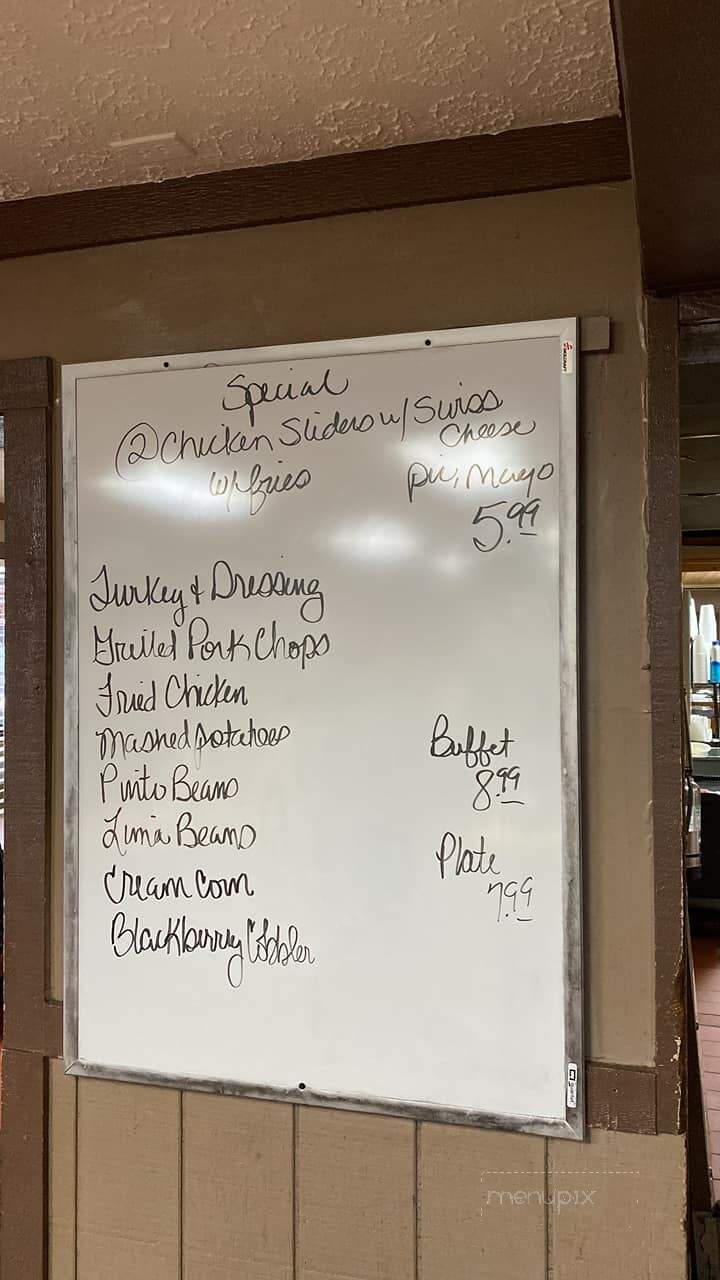 Special
② Chicken Sliders w/ Swiss
Cheese
w/ fries
pic, Mayo
5.99
Turkey & Dressing
Grilled Pork Chops
Fried Chicken
Mashed potatoes
Pinto Beans
Lima Beans
Cream Corn
Blackberry Cobbler
Buffet
8.99
Plate
7.99
menupix